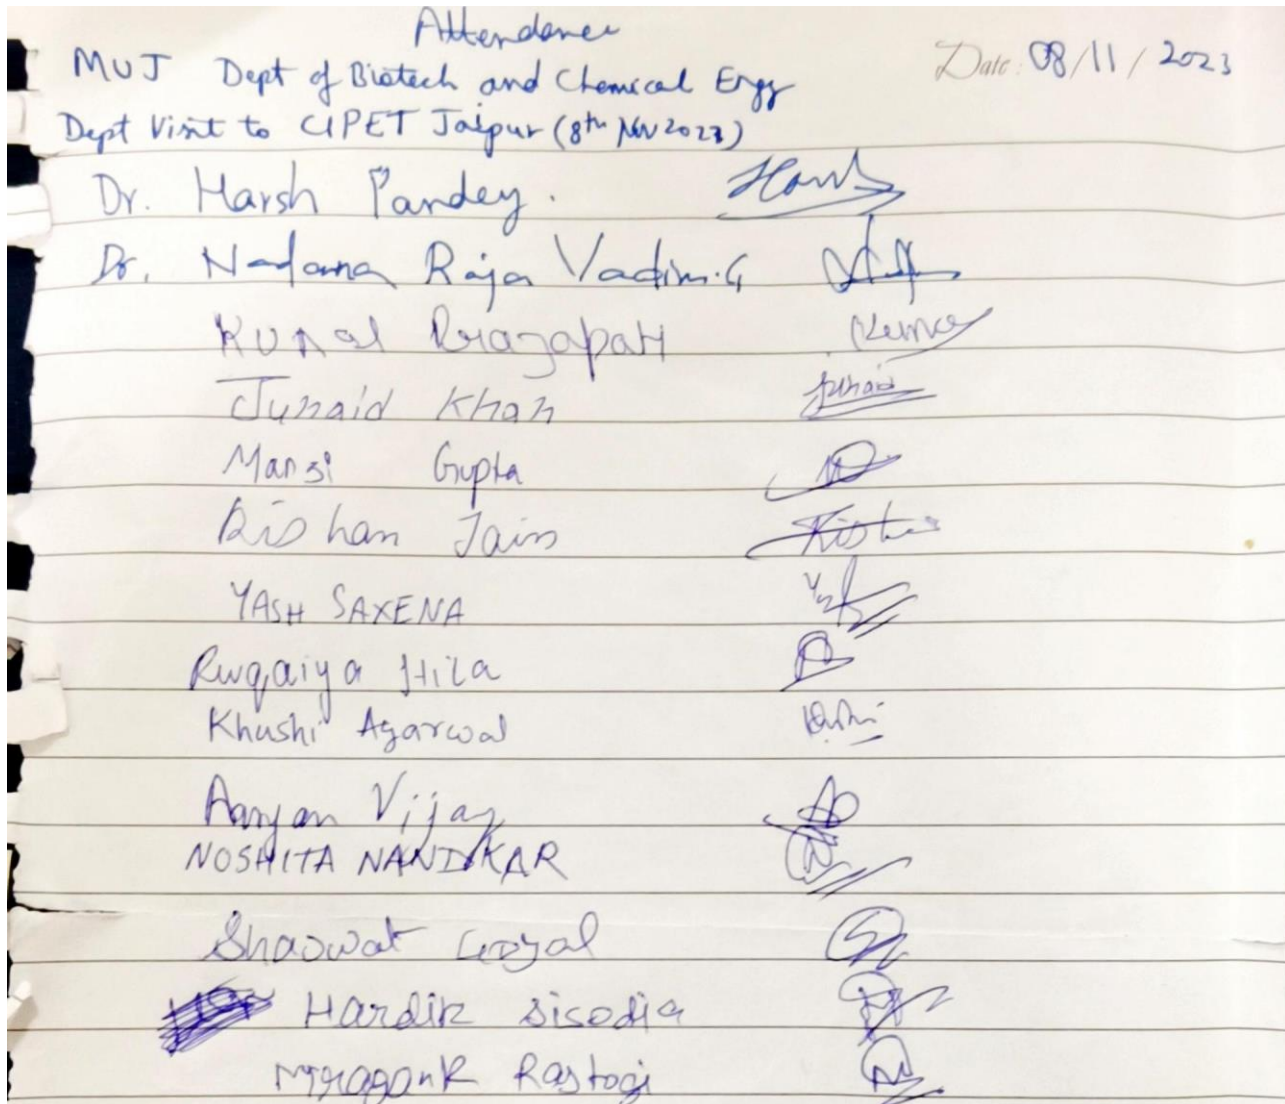 Attendance
Date: 08/11/2023
MUJ Dept of Biotech and Chemical Engg
Dept Visit to CIPET Jaipur (8th Nov 2023)
Dr. Harsh Pandey. Harsh
Dr. Nadana Raja Vadivu.G
Kunal Prajapati Kunal
Junaid Khan Junaid
Mansi Gupta
Kishan Jain Kisha
YASH SAXENA Yash
Ruqaiya Hila
Khushi Agarwal Khushi
Aaryan Vijay
NOSHITA NANDKAR
Shaswat Goyal
Hardik Sisodia
Mragank Rastogi